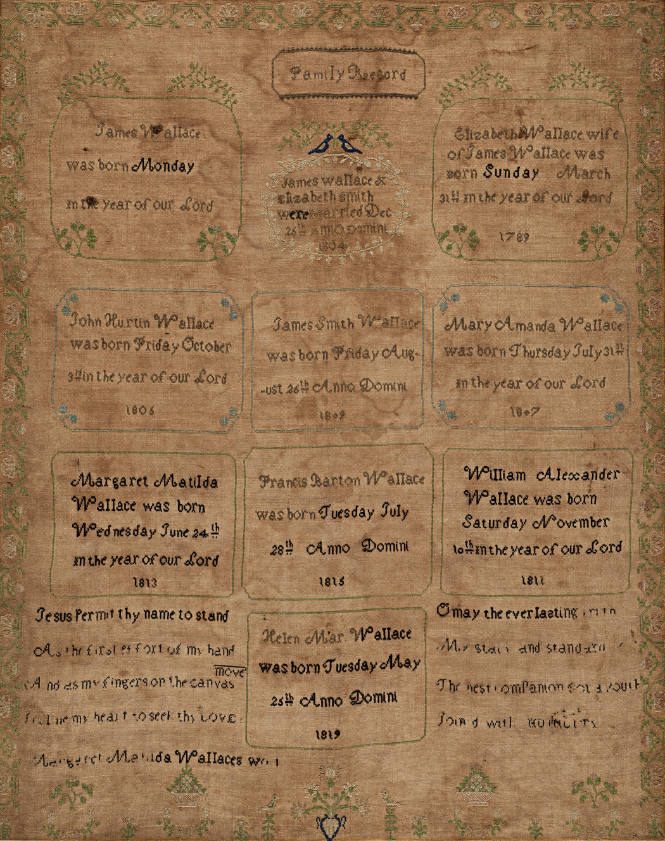 Family Record
James Wallace
was born Monday
in the year of our Lord
James Wallace &
Elizabeth Smith
were married Dec
26th Anno Domini
1804
Elizabeth Wallace wife
of James Wallace was
born Sunday March
31st in the year of our Lord
1789
John Hurtin Wallace
was born Friday October
in the year of our Lord
1805
James Smith Wallace
was born Friday Aug-
-ust 26th Anno Domini
1809
Mary Amanda Wallace
was born Thursday July 31st
in the year of our Lord
1807
Margaret Matilda
Wallace was born
Wednesday June 24th
in the year of our Lord
1813
Francis Barton Wallace
was born Tuesday July
28th Anno Domini
1815
William Alexander
Wallace was born
Saturday November
10th in the year of our Lord
1811
Jesus Permit thy name to stand
As the first effort of my hand
move
And as my fingers on the canvas
my heart to seek thy Love
Margaret Matilda Wallaces
Helen Mar. Wallace
was born Tuesday May
25th Anno Domini
1819
O may the everlasting
My and standard
The best companion
Join d with